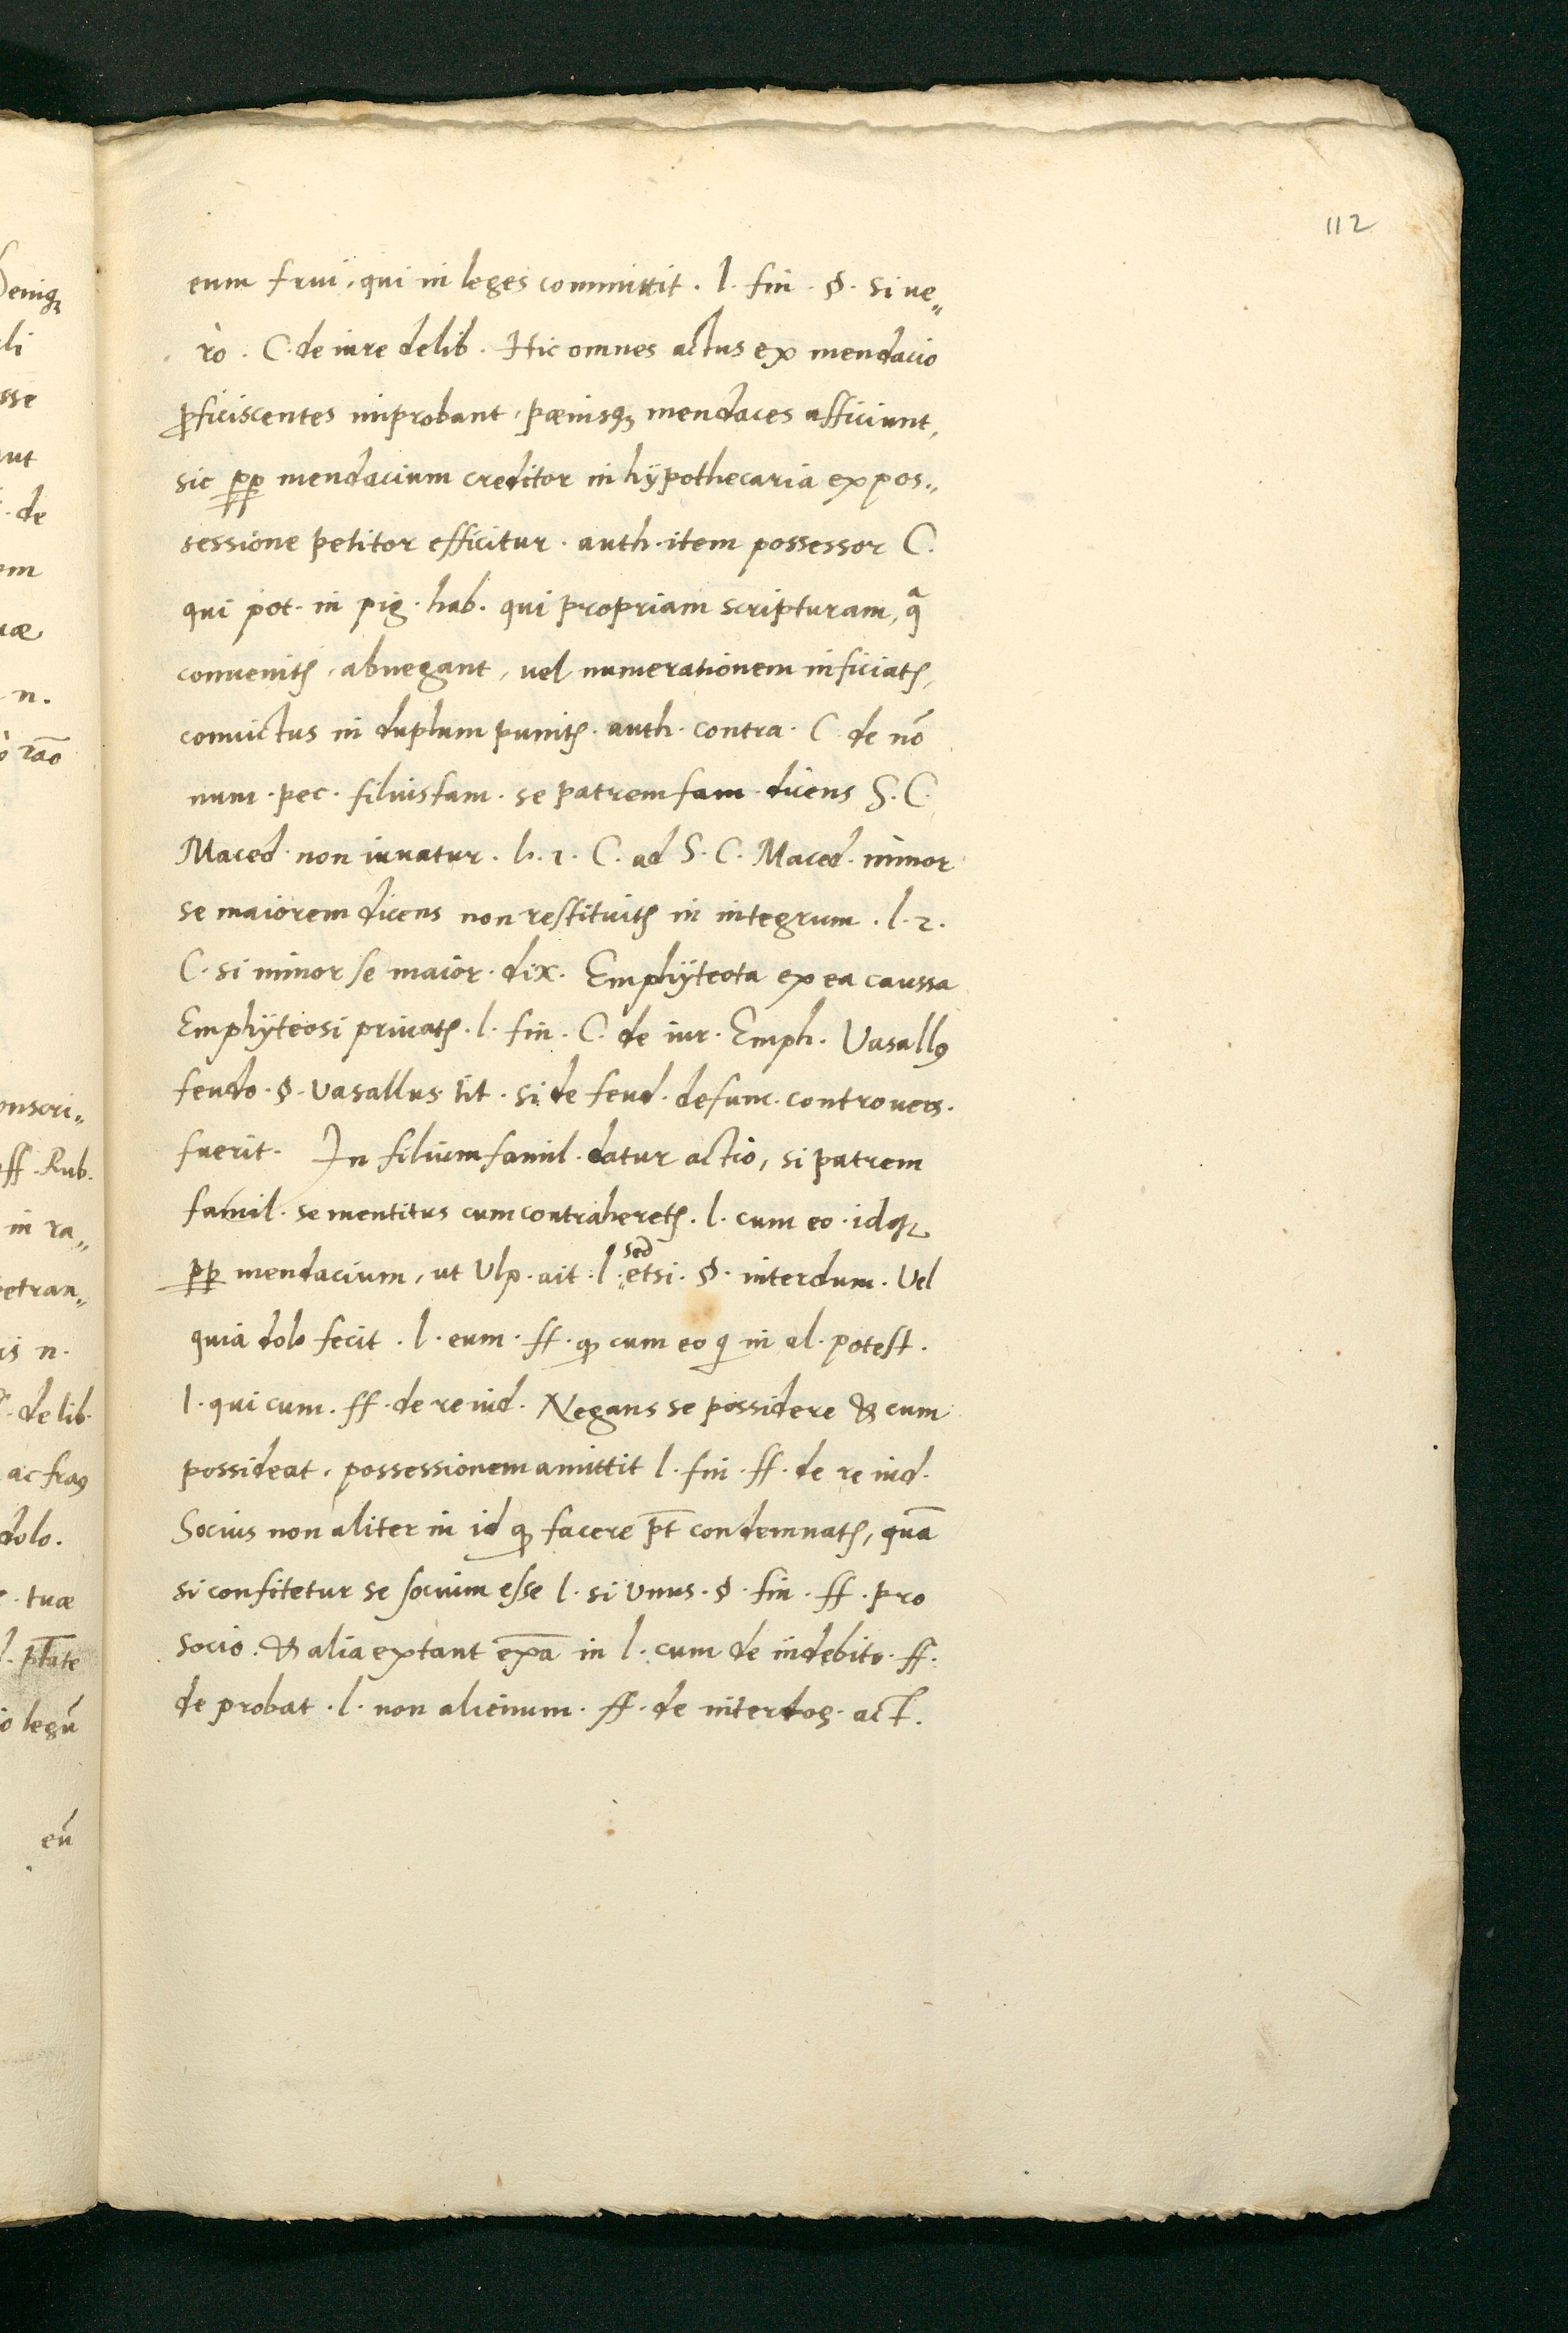 112
eum frui, qui in leges committit. l. fin. §. si ue„
rò. C. de iure delib. Hic omnes actus ex mendacio
ꝓficiscentes improbant, pænisqꝫ mendaces afficiunt,
sic ꝓp mendacium creditor in hÿpothecaria ex pos„
sessione petitor efficitur. auth. item possessor C.
qui pot. in pig. hab. qui propriam scripturam, qᵃ
conuenitꝭ, abnegant, uel numerationem inficiatꝭ,
conuictus in duplum punitꝭ. auth. contra. C. de nō
num. pec. filiusfam. se patremfam. dicens S. C.
Maced. non iuuatur. l. 1. C. ad S. C. Maced. minor
se maiorem dicens non restituitꝭ in integrum. l. 2.
C. si minor se maior. dix. Emphÿteota ex ea caussa
Emphÿteosi priuatꝭ. l. fin. C. de iur. Emph. Vasallꝰ
feudo. §. Vasallus. tit. si de feud. defunc. controuers.
fuerit. In filiumfamil. datur actio, si patrem
famil. se mentitus cum contraheretꝭ. l. cum eo. idqꝫ
ꝓp mendacium, ut Ulp. ait. l. sed etsi. §. interdum. Vel
quia dolo fecit. l. eum. ff. ꝙ cum eo q in al. potest.
l. qui cum. ff. de re iud. Negans se possidere & cum
possideat, possessionem amittit l. fin. ff. de re iud.
Socius non aliter in id ꝙ facere p̄t condemnatꝭ, quā
si confitetur se socium esse l. si unus. §. fin. ff. pro
socio. & alia extant exā in l. cum de indebito. ff.
de probat. l. non alienum. ff. de interrog. act.
eniqꝫ
li
sse
ut
de
om
uæ
n.
rāo
onscri„
ff. Rub.
in ra„
etran„
is n.
delib.
ac fraꝰ
dolo.
tuæ
p̄tate
legū
eū